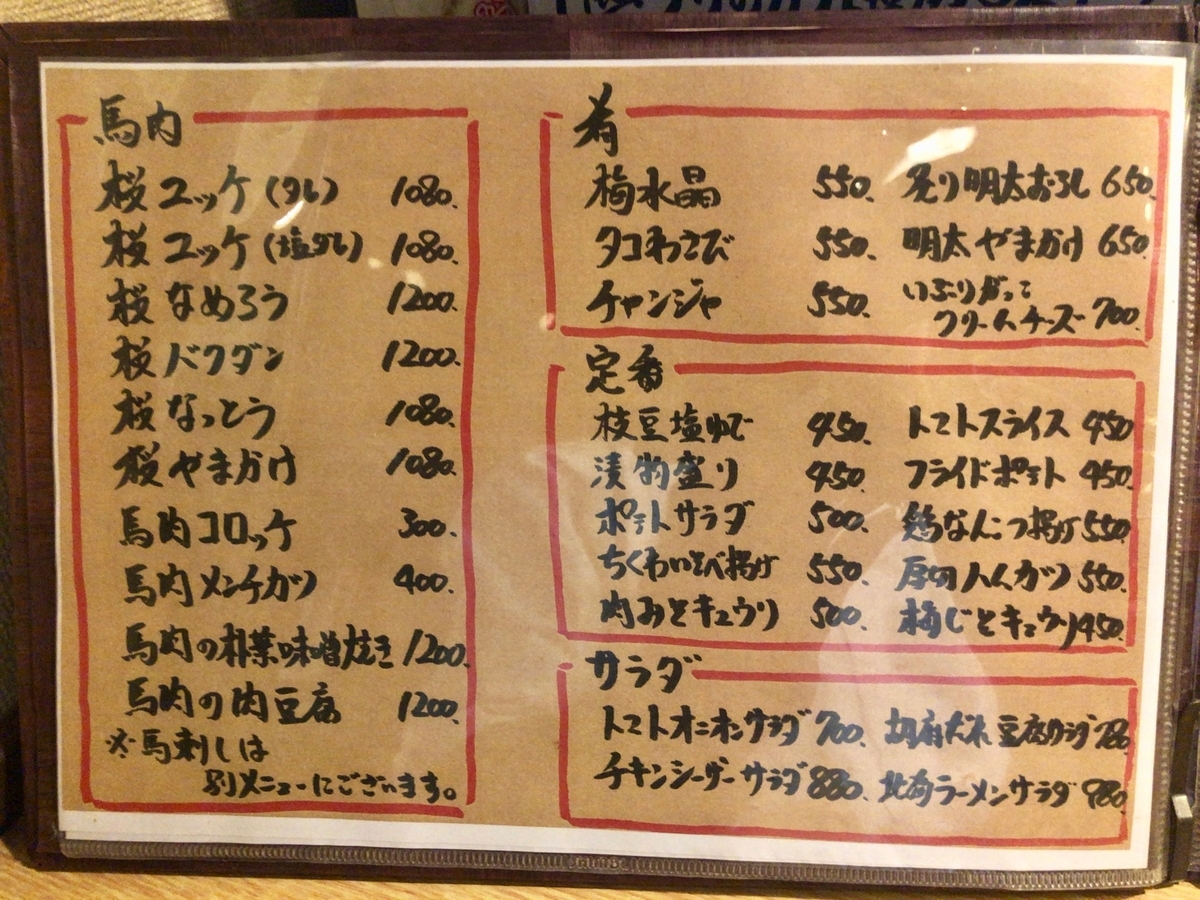 馬肉
桜ユッケ(タレ) 1080.
桜ユッケ(塩ダレ) 1080.
桜なめろう 1200.
桜バクダン 1200.
桜なっとう 1080.
桜やまかけ 1080.
馬肉コロッケ 300.
馬肉メンチカツ 400.
馬肉の朴葉味噌焼き 1200.
馬肉の肉豆腐 1200.
※馬刺しは
別メニューにございます。
肴
梅水晶 550. 炙り明太おろし 650.
タコわさび 550. 明太やまかけ 650.
チャンジャ 550. いぶりがっこ
クリームチーズ 700.
定番
枝豆塩ゆで 450. トマトスライス 450
漬物盛り 450. フライドポテト 450.
ポテトサラダ 500. 鶏なんこつ揚げ 550.
ちくわいそべ揚げ 550. 厚切ハムカツ 550.
肉みそキュウリ 500. 梅じそキュウリ 450.
サラダ
トマトオニオンサラダ 700. 胡麻だれ豆腐サラダ 780.
チキンシーザーサラダ 880. 北海ラーメンサラダ 980.